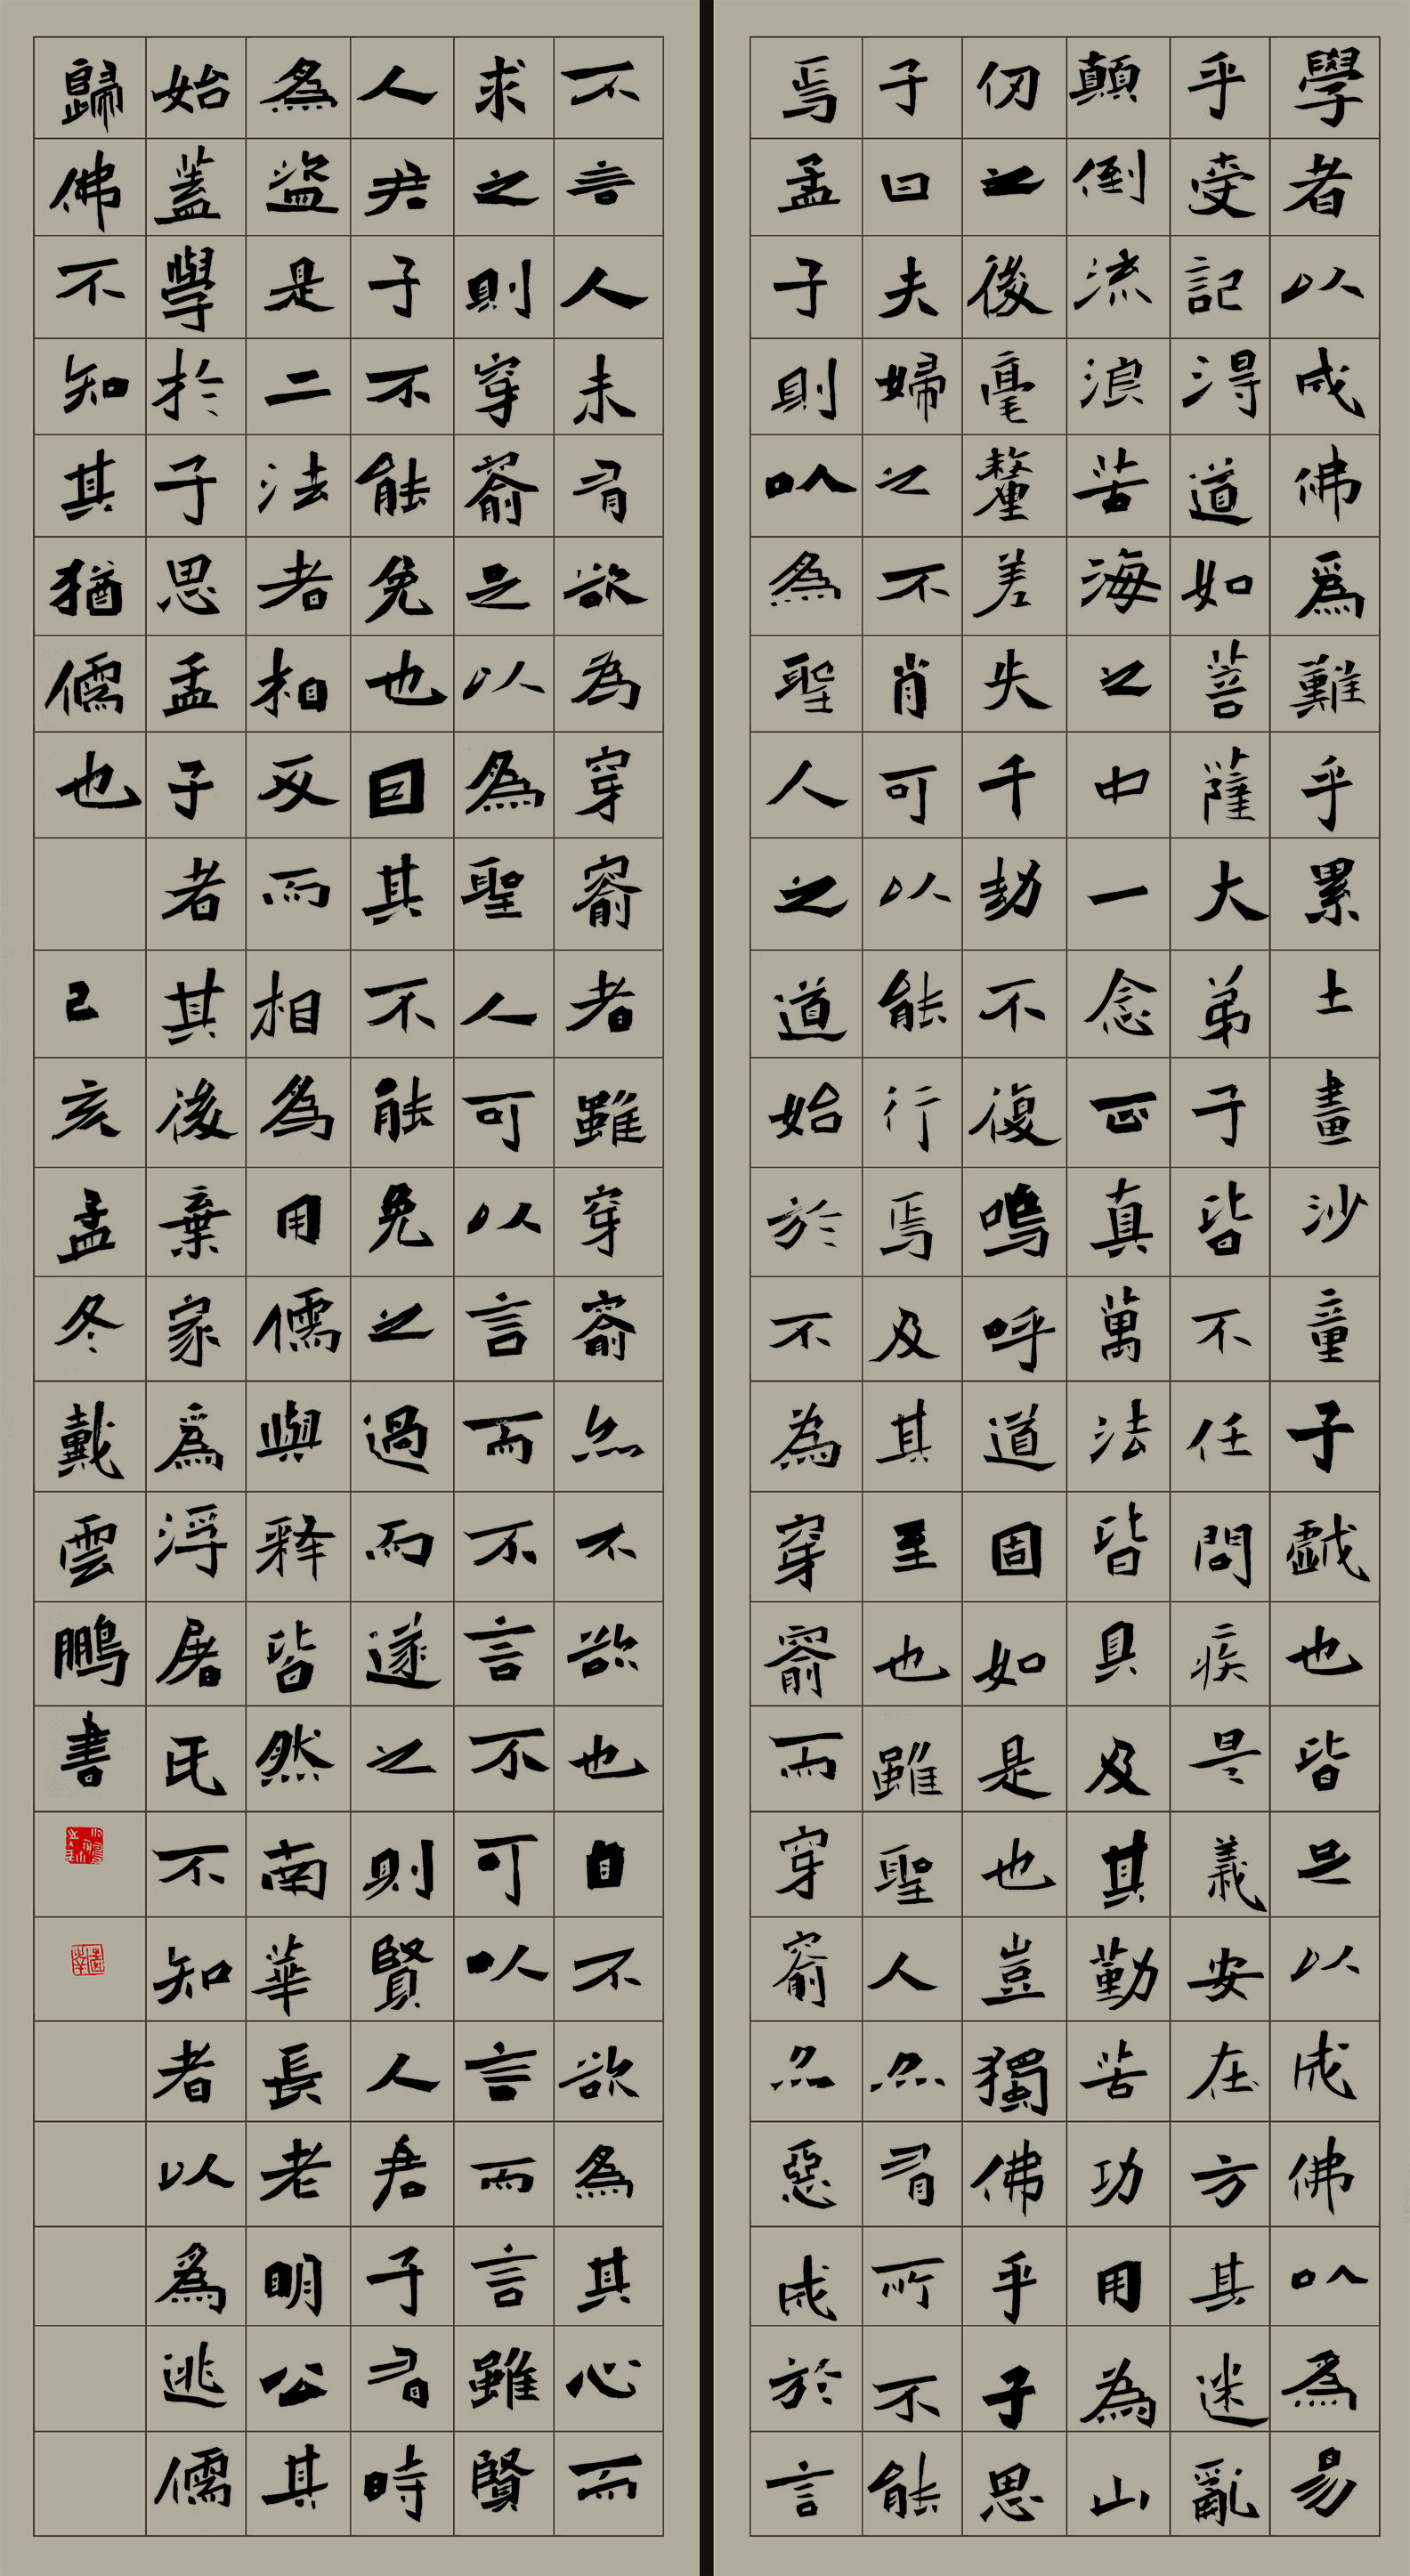 學者以成佛爲難乎累土畫沙童子戲也皆足以成佛以爲易
乎受記得道如菩薩大弟子皆不任問疾是義安在方其迷亂
顛倒流浪苦海之中一念正真萬法皆具及其勤苦功用為山
仞之後毫釐差失千劫不復嗚呼道固如是也豈獨佛乎子思
子曰夫婦之不肖可以能行焉及其至也雖聖人亦有所不能
焉孟子則以為聖人之道始於不為穿窬而穿窬亦惡成於言
不言人未有欲為穿窬者雖穿窬亦不欲也自不欲為其心而
求之則穿窬之以為聖人可以言而不言不可以言而言雖賢
人君子不能免也因其不能免之過而遂之則賢人君子有時
為盜是二法者相反而相為用儒與释皆然南華長老明公其
始蓋學於子思孟子者其後棄家爲浮屠氏不知者以爲逃儒
歸佛不知其猶儒也 己亥孟冬戴雲鵬書